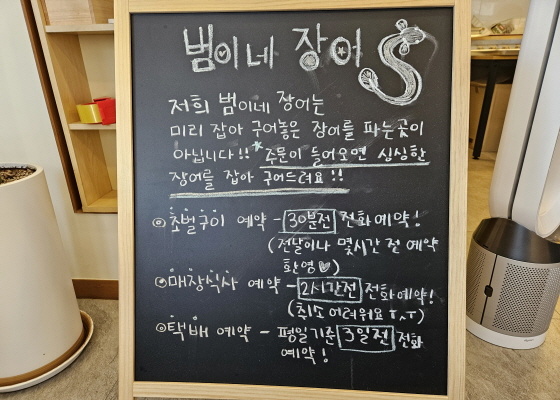 범이네 장어
저희 범이네 장어는
미리 잡아 구어놓은 장어를 파는곳이
아닙니다!! *주문이 들어오면 싱싱한
장어를 잡아 구어드려요!!
◎초벌구이 예약 - 30분전 전화예약!
(전날이나 몇시간 전 예약
환영♡)
◎매장식사 예약 - 2시간전 전화예약!
(취소 어려워요 T.T)
◎택배 예약 - 평일기준 3일전 전화
예약!